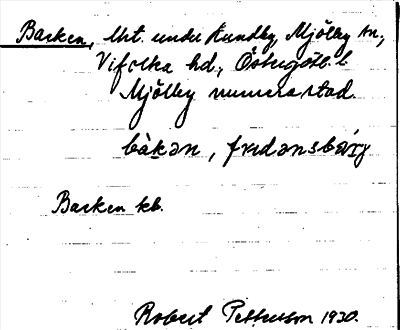 Backen, lht. under Lundby, Mjölby sn.,
Vifolka hd., Östergötl. l.
Mjölby numera stad.
bàkən, fridənsbærj
Backen kb.
Robert Pettersson 1930.